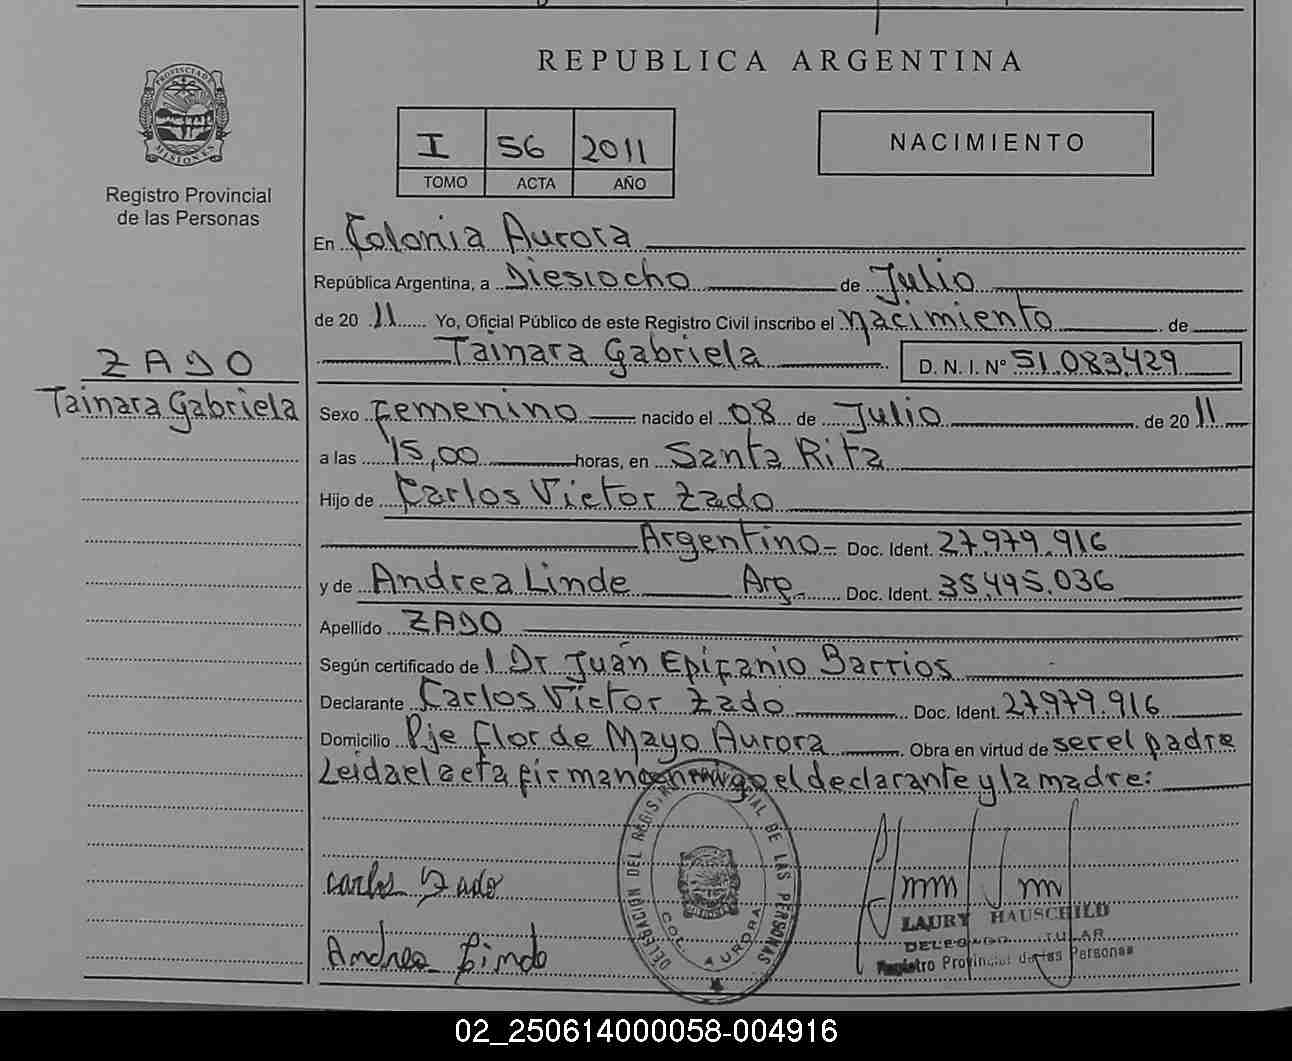 REPUBLICA ARGENTINA
PROVINCIA DE MISIONES
Registro Provincial
de las Personas
I 56 2011
TOMO ACTA AÑO
NACIMIENTO
En Colonia Aurora
República Argentina, a Diesiocho de Julio
de 20 11 Yo, Oficial Público de este Registro Civil inscribo el nacimiento de
Tainara Gabriela D. N. I. Nº 51.083.429
ZADO
Tainara Gabriela
Sexo Femenino nacido el 08 de Julio de 20 11
a las 15,00 horas, en Santa Rita
Hijo de Carlos Victor Zado
Argentino Doc. Ident. 27.979.916
y de Andrea Linde Arg. Doc. Ident. 35.495.036
Apellido ZADO
Según certificado de l Dr Juan Epifanio Barrios
Declarante Carlos Victor Zado Doc. Ident. 27.979.916
Domicilio Pje Flor de Mayo Aurora Obra en virtud de ser el padre
Leida el acta firman conmigo el declarante y la madre:
Carlos Zado
Andrea Linde
DELEGACIÓN DEL REGISTRO PROVINCIAL DE LAS PERSONAS
COL. AURORA
LAURY HAUSCHILD
DELEGADO TITULAR
Registro Provincial de las Personas
02_250614000058-004916